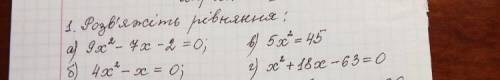 1. Розв'яжіть рівняння:
а) 9x² - 7x - 2 = 0; в) 5x² = 45
б) 4x² - x = 0; г) x² + 18x - 63 = 0